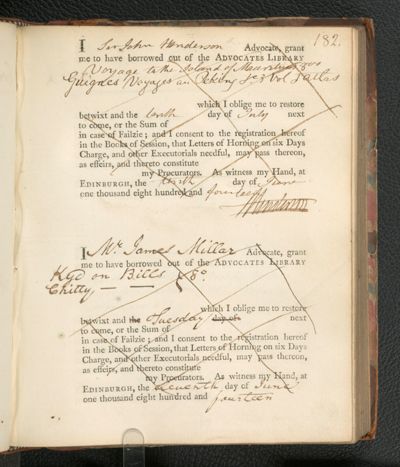 182.
I Sir John Henderson Advocate, grant
me to have borrowed out of the ADVOCATES LIBRARY
Voyage to the Island of Mauritius 8vo
Guignes Voyages au Peking &c 3 vol & atlas
which I oblige me to restore
betwixt and the tenth day of July next
to come, or the Sum of
in case of Failzie; and I consent to the registration hereof
in the Books of Session, that Letters of Horning on six Days
Charge, and other Executorials needful, may pass thereon,
as effeirs, and thereto constitute
my Procurators. As witness my Hand, at
EDINBURGH, the tenth day of June
one thousand eight hundred and fourteen
I Mr. James Millar Advocate, grant
me to have borrowed out of the ADVOCATES LIBRARY
Kyd on Bills
Chitty — — 8o.
which I oblige me to restore
betwixt and the Tuesday day of next
to come, or the Sum of
in case of Failzie; and I consent to the registration hereof
in the Books of Session, that Letters of Horning on six Days
Charge, and other Executorials needful, may pass thereon,
as effeirs, and thereto constitute
my Procurators. As witness my Hand, at
EDINBURGH, the eleventh day of June
one thousand eight hundred and
fourteen